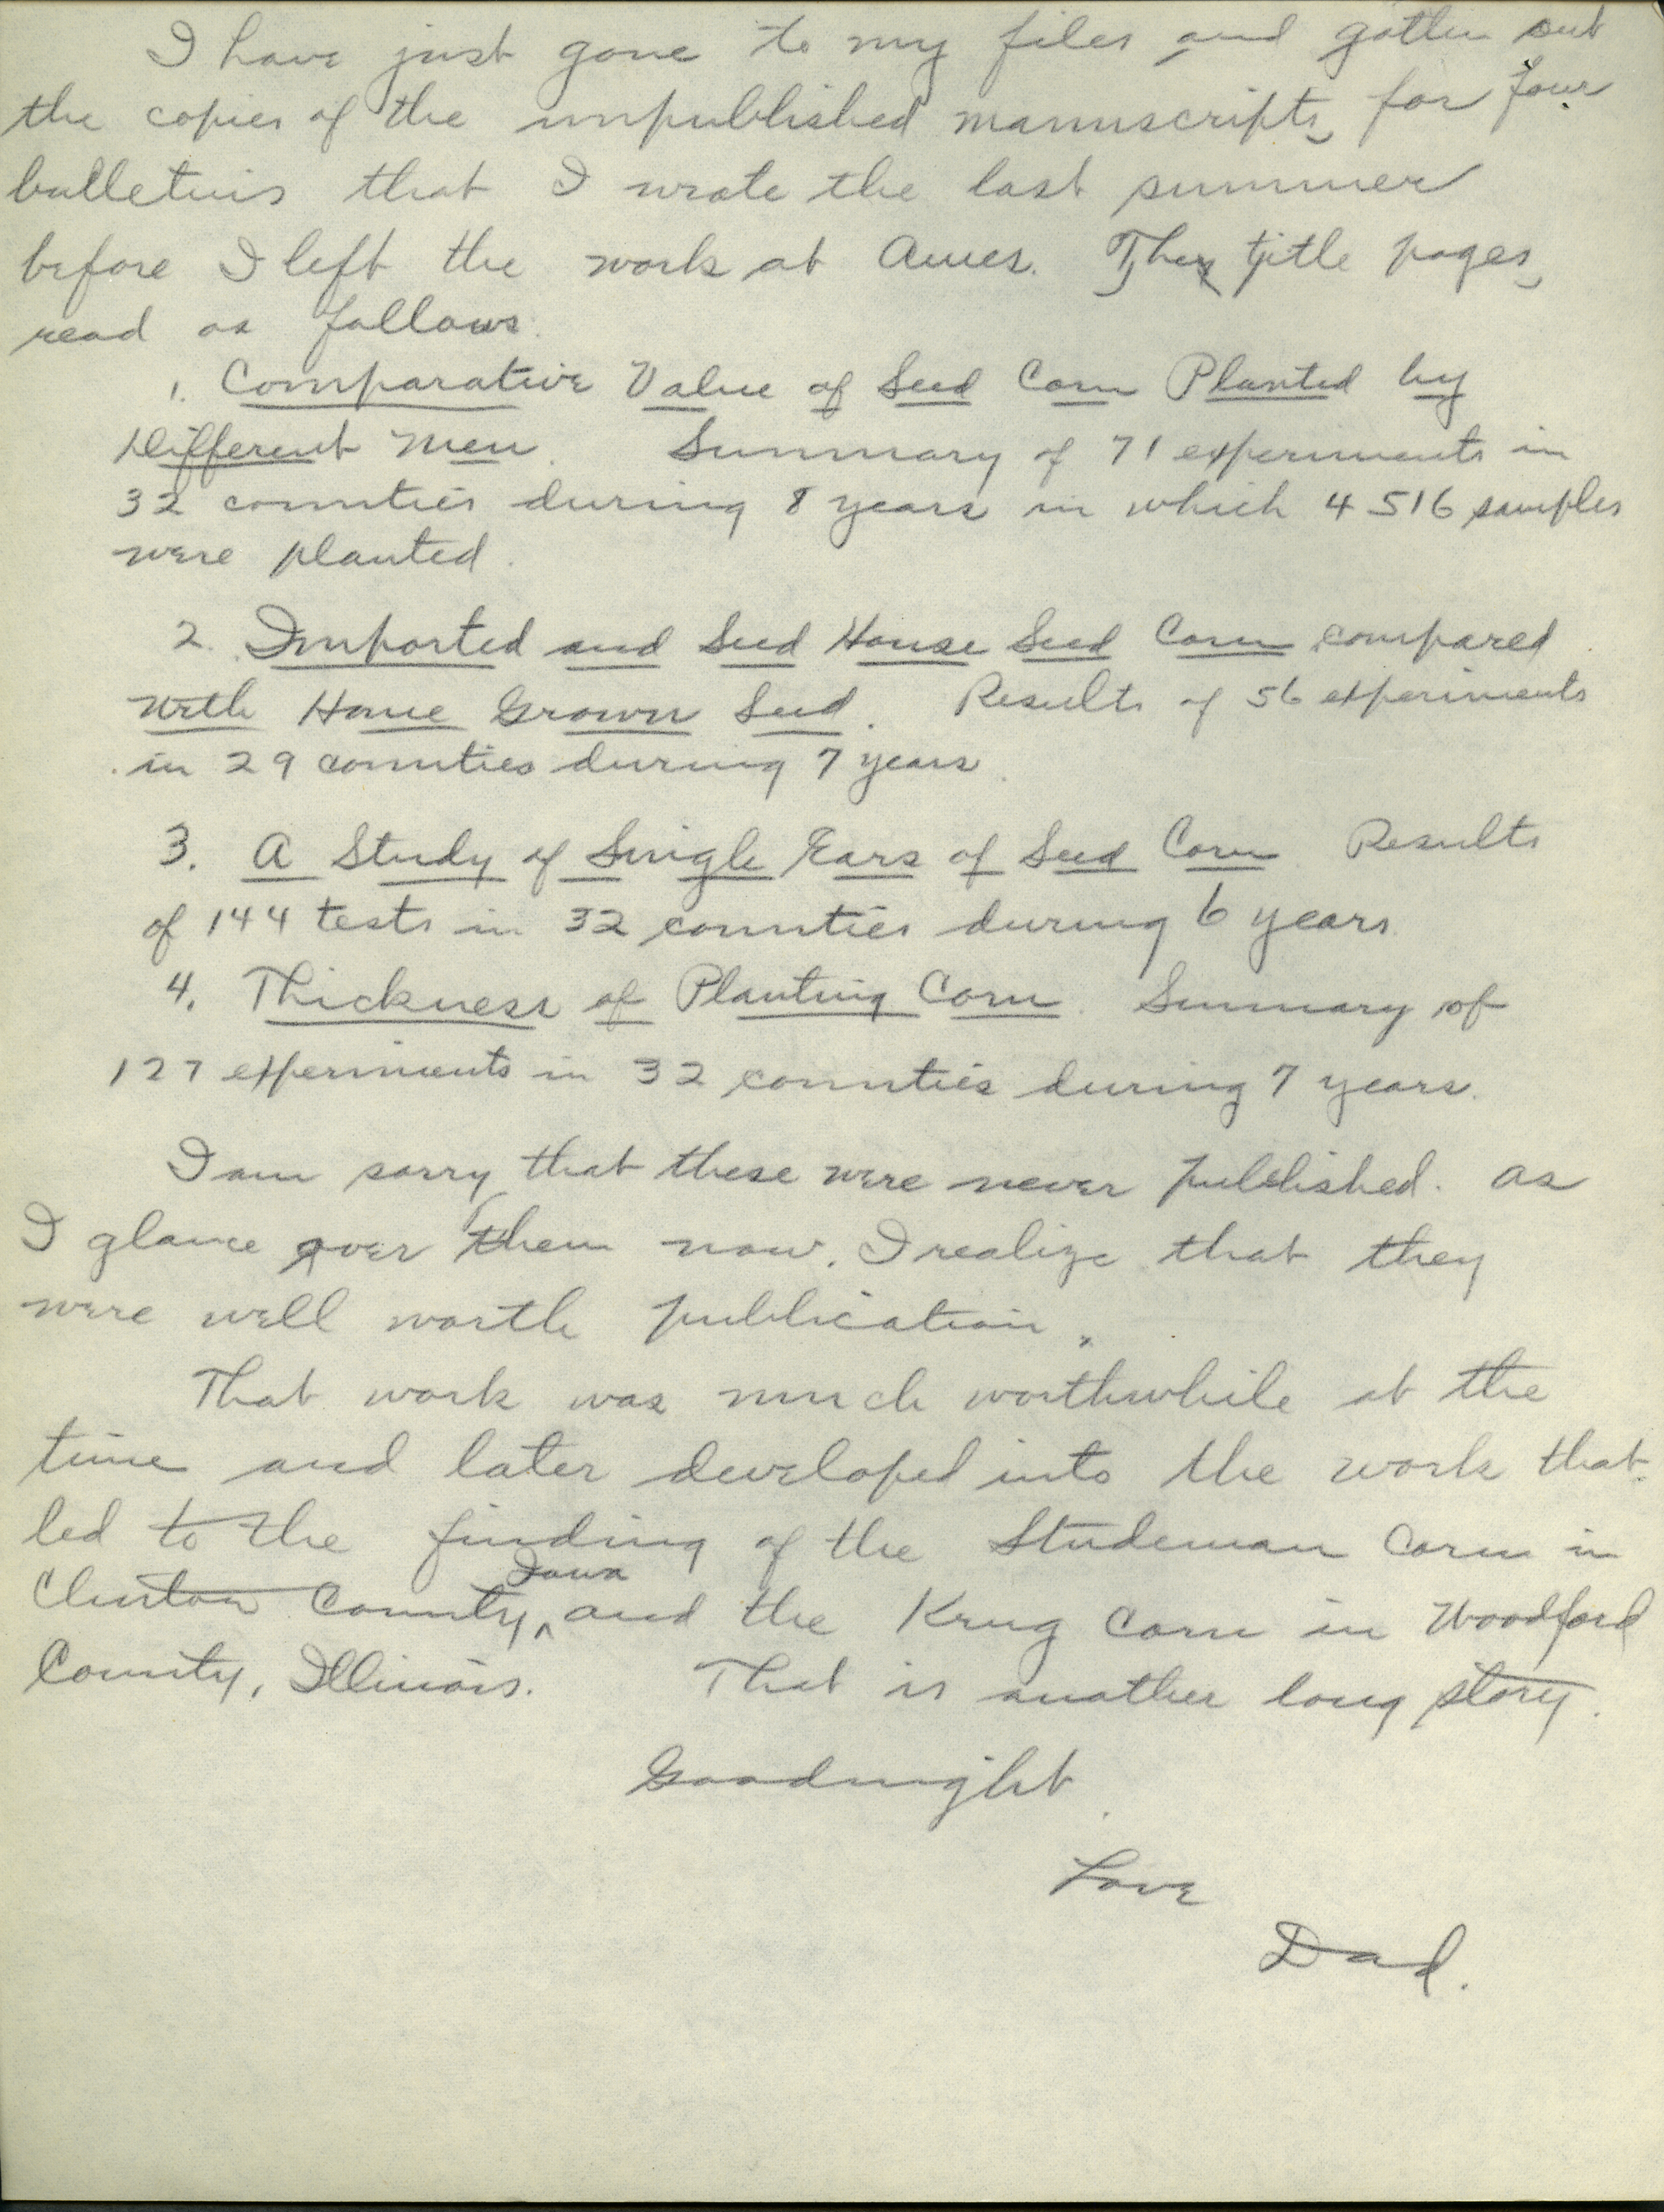 I have just gone to my files and gotten out
the copies of the unpublished manuscripts for four
bulletins that I wrote the last summer
before I left the work at Ames. The title pages
read as follows.
1. Comparative Value of Seed Corn Planted by
Different Men. Summary of 71 experiments in
32 counties during 8 years in which 4516 samples
were planted.
2. Imported and Seed House Seed Corn compared
with Home Grown Seed. Results of 56 experiments
in 29 counties during 7 years.
3. A Study of Single Ears of Seed Corn Results
of 144 tests in 32 counties during 6 years.
4. Thickness of Planting Corn. Summary of
127 experiments in 32 counties during 7 years.
I am sorry that these were never published. As
I glance over them now, I realize that they
were well worth publication.
That work was much worthwhile at the
time and later developed into the work that
led to the finding of the Studeman Corn in
Iowa
Clinton County, and the Krug Corn in Woodford
County, Illinois. That is another long story.
Goodnight.
Love
Dad.